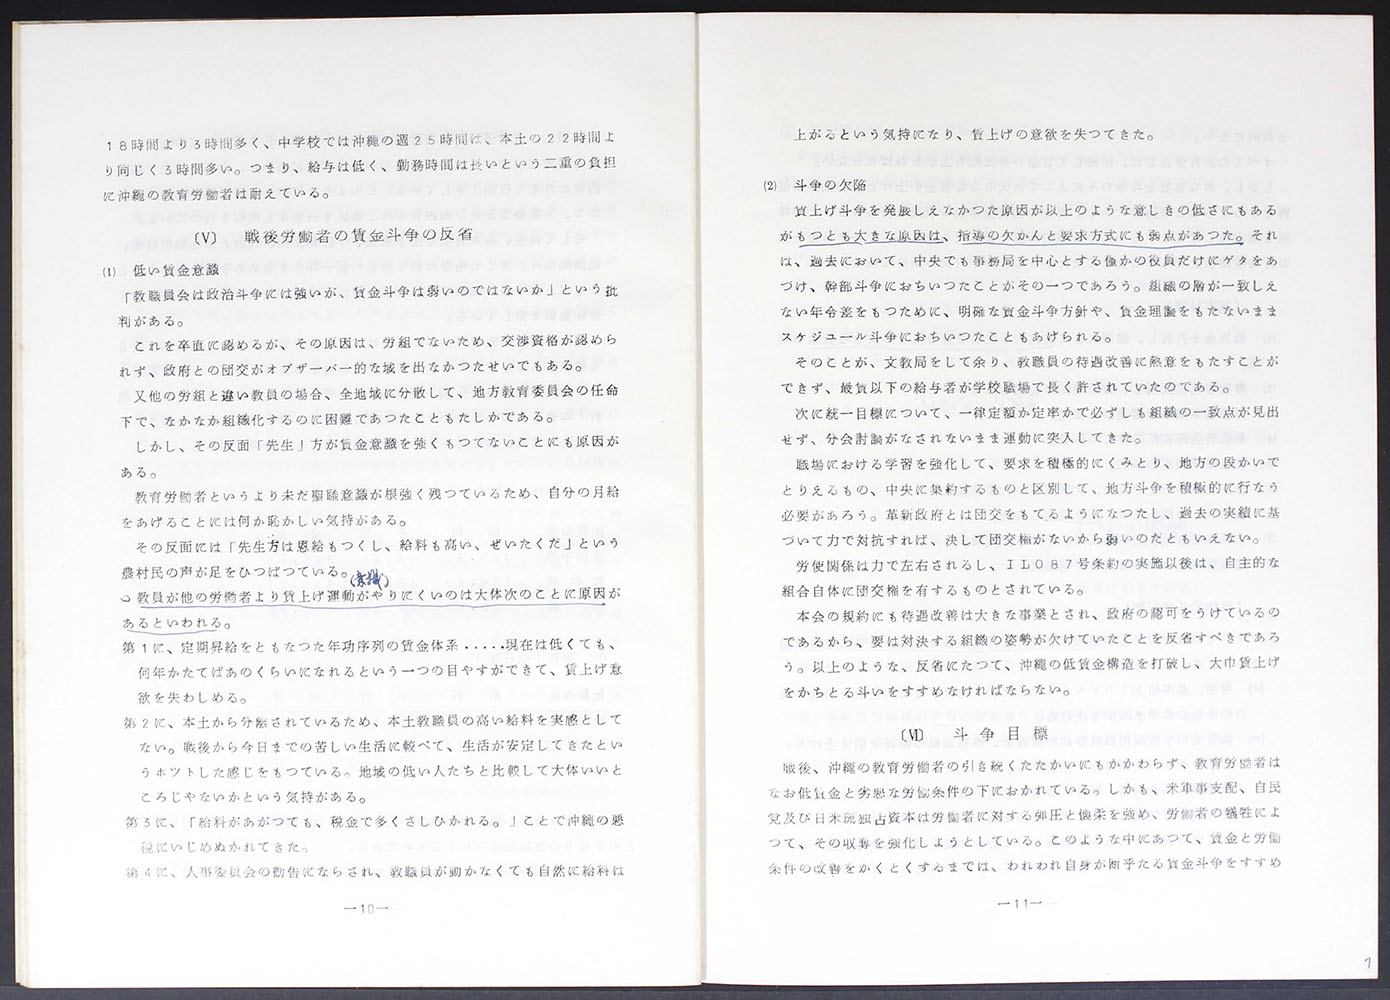 18時間より3時間多く、中学校では沖縄の週25時間は、本土の22時間よ
り同じく3時間多い。つまり、給与は低く、勤務時間は長いという二重の負担
に沖縄の教育労働者は耐えている。
〔Ⅴ〕 戦後労働者の賃金斗争の反省
(1) 低い賃金意識
「教職員会は政治斗争には強いが、賃金斗争は弱いのではないか」という批
判がある。
これを卒直に認めるが、その原因は、労組でないため、交渉資格が認めら
れず、政府との団交がオブザーバー的な域を出なかつたせいでもある。
又他の労組と違い教員の場合、全地域に分散して、地方教育委員会の任命
下で、なかなか組織化するのに困難であつたこともたしかである。
しかし、その反面「先生」方が賃金意識を強くもつてないことにも原因が
ある。
教育労働者というより未だ聖職意識が根強く残つているため、自分の月給
をあげることには何か恥かしい気持がある。
その反面には「先生方は恩給もつくし、給料も高い、ぜいたくだ」という
農村民の声が足をひつぱつている。
(意識)
○教員が他の労働者より賃上げ運動がやりにくいのは大体次のことに原因が
あるといわれる。
第1に、定期昇給をともなつた年功序列の賃金体系.....現在は低くても、
何年かたてばあのくらいになれるという一つの目やすができて、賃上げ意
欲を失わしめる。
第2に、本土から分離されているため、本土教職員の高い給料を実感として
ない。戦後から今日までの苦しい生活に較べて、生活が安定してきたとい
うホツトした感じをもつている。地域の低い人たちと比較して大体いいと
ころじやないかという気持がある。
第3に、「給料があがつても、税金で多くさしひかれる。」ことで沖縄の悪
税にいじめぬかれてきた。
第4に、人事委員会の勧告にならされ、教職員が動かなくても自然に給料は
—10—
上がるという気持になり、賃上げの意欲を失つてきた。
(2) 斗争の欠陥
賃上げ斗争を発展しえなかつた原因が以上のような意しきの低さにもある
がもつとも大きな原因は、指導の欠かんと要求方式にも弱点があつた。それ
は、過去において、中央でも事務局を中心とする僅かの役員だけにゲタをあ
づけ、幹部斗争におちいつたことがその一つであろう。組織の層が一致しえ
ない年令差をもつために、明確な賃金斗争方針や、賃金理論をもたないまま
スケジュール斗争におちいつたこともあげられる。
そのことが、文教局をして余り、教職員の待遇改善に熱意をもたすことが
できず、最賃以下の給与者が学校職場で長く許されていたのである。
次に統一目標について、一律定額か定率かで必ずしも組織の一致点が見出
せず、分会討論がなされないまま運動に突入してきた。
職場における学習を強化して、要求を積極的にくみとり、地方の段かいで
とりえるもの、中央に集約するものと区別して、地方斗争を積極的に行なう
必要があろう。革新政府とは団交をもてるようになつたし、過去の実績に基
づいて力で対抗すれば、決して団交権がないから弱いのだともいえない。
労使関係は力で左右されるし、ILO87号条約の実施以後は、自主的な
組合自体に団交権を有するものとされている。
本会の規約にも待遇改善は大きな事業とされ、政府の認可をうけているの
であるから、要は対決する組織の姿勢が欠けていたことを反省すべきであろ
う。以上のような、反省にたつて、沖縄の低賃金構造を打破し、大巾賃上げ
をかちとる斗いをすすめなければならない。
〔Ⅵ〕 斗争目標
戦後、沖縄の教育労働者の引き続くたたかいにもかかわらず、教育労働者は
なお低賃金と劣悪な労働条件の下におかれている。しかも、米軍事支配、自民
党及び日米琉独占資本は労働者に対する弾圧と懐柔を強め、労働者の犠牲によ
つて、その収奪を強化しようとしている。このような中にあつて、賃金と労働
条件の改善をかくとくするまでは、われわれ自身が断乎たる賃金斗争をすすめ
—11—
7